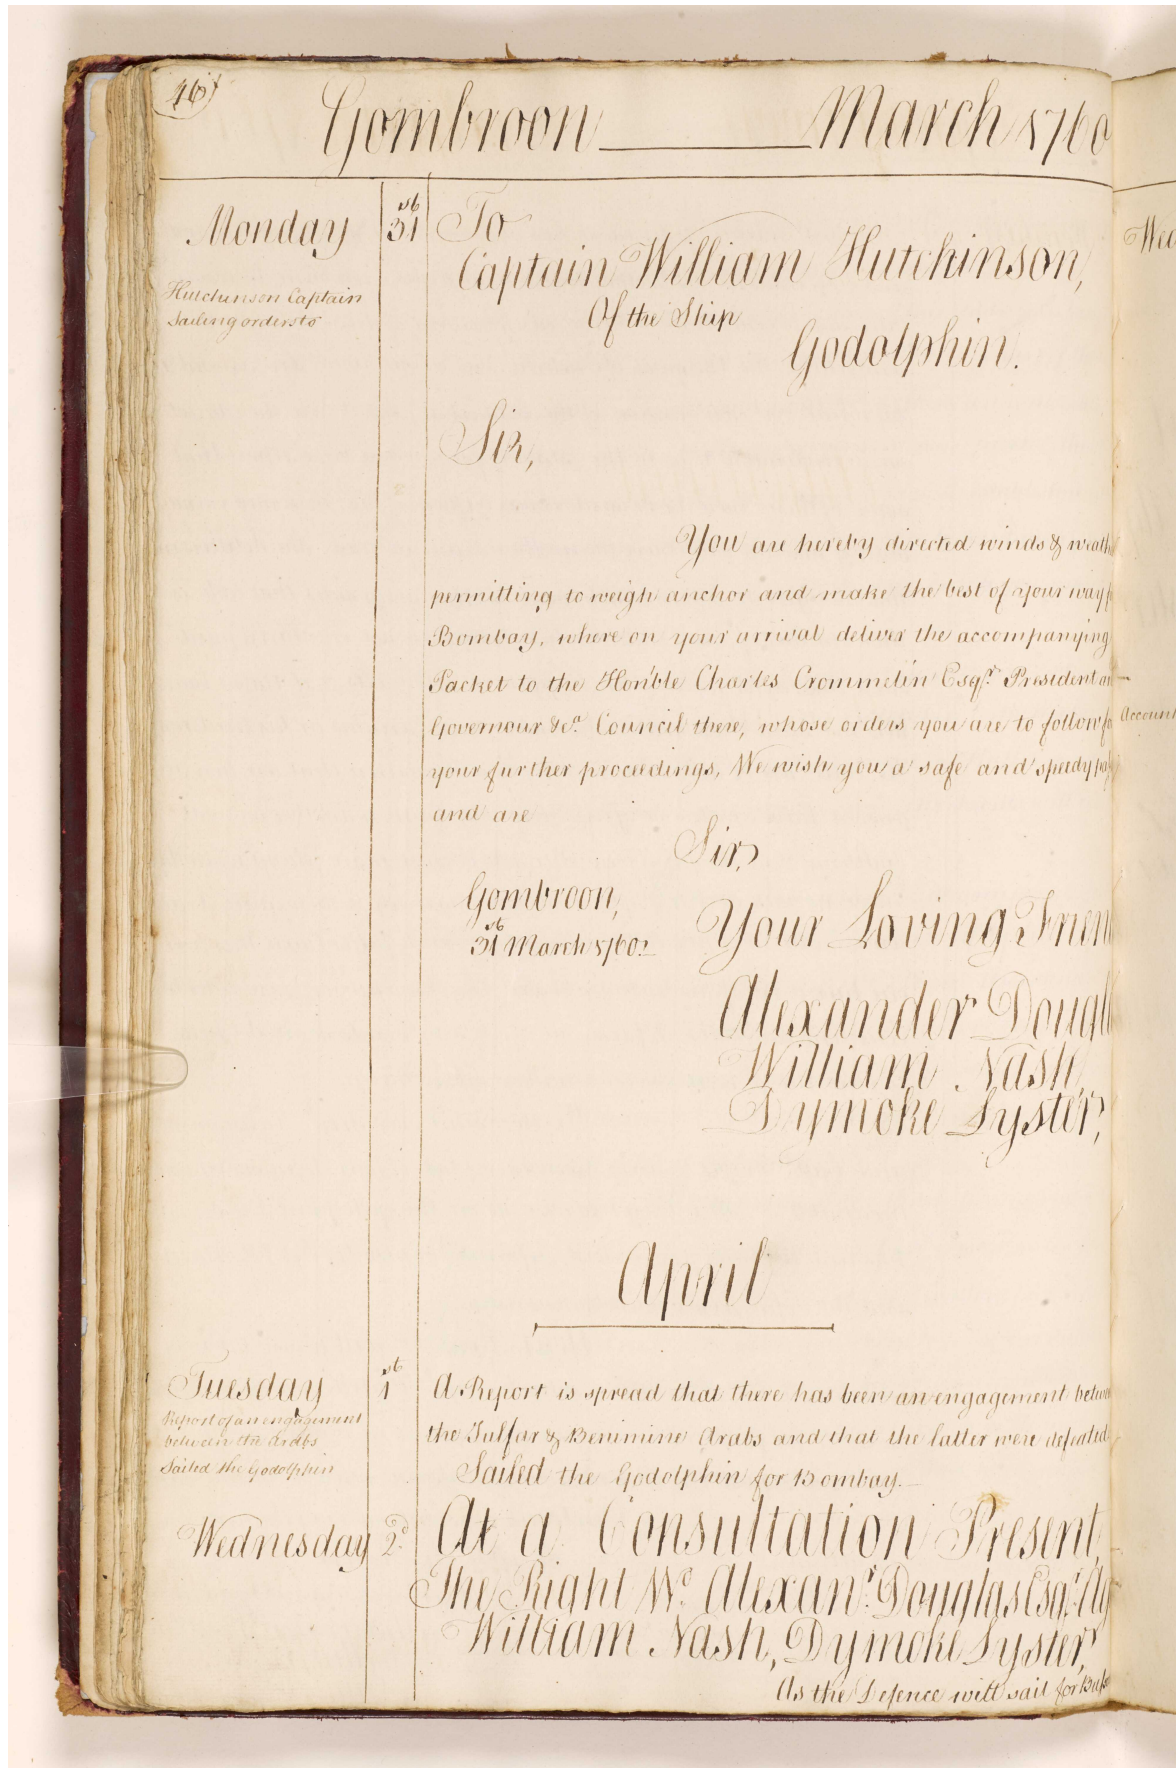 46
Gombroon March 1760
Monday 31st To
Captain William Hutchinson,
Hutchinson Captain
Sailing orders to
Of the Ship
Godolphin.
Sir,
You are hereby directed winds & weath
permitting to weigh anchor and make the best of your way
Bombay, where on your arrival deliver the accompanying
Packet to the Honble Charles Crommelin Esqr. President an
Governour &ca. Council there, whose orders you are to follow fo
your further proceedings, We wish you a safe and speedy pass
and are
Sir,
Gombroon,
31st March 1760.
Your Loving Frien
Alexander Dougl
William Nash,
Dymoke Lyster,
April
Tuesday 1st A Report is spread that there has been an engagement betwe
Report of an engagement
between the Arabs
Sailed the Godolphin
the Julfar & Benimine Arabs and that the latter were defeated
Sailed the Godolphin for Bombay.
Wednesday 2d. At a Consultation Present,
The Right Wo. Alexanr. Douglas Esqr. Ag
William Nash, Dymoke Lyster,
As the Defence will sail for Buss
Wed
Account